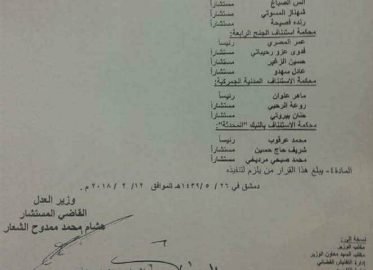 أنس الصباغ مستشاراً
شهناز المسوتي مستشاراً
رنده فصيحة مستشاراً
محكمة استئناف الجنح الرابعة:
عمر المصري رئيساً
فدوى عزو رحيباني مستشاراً
حسين الزغير مستشاراً
عادل سهدو مستشاراً
محكمة الاستئناف المدنية الجمركية:
ماهر علوان رئيساً
روعة الرحبي مستشاراً
حنان بيروتي مستشاراً
محكمة الاستئناف بالنبك "المحدثة":
محمد عرقوب رئيساً
شريف حاج حسين مستشاراً
محمد صبحي مرديخي مستشاراً
المادة٤- يبلغ هذا القرار من يلزم لتنفيذه
دمشق في ٢٦ / ٥ / ١٤٣٩هـ الموافق ١٢ / ٢ / ٢٠١٨م
وزير العدل
القاضي المستشار
هشام محمد ممدوح الشعار
نسخة إلى:
مكتب الوزير
مكتب السيد معاون الوزير
إدارة التفتيش القضائي